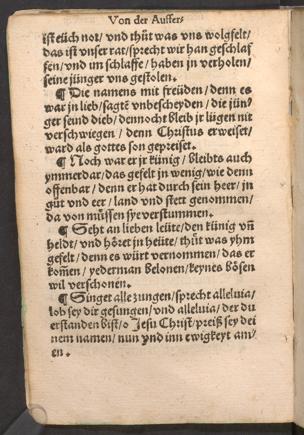 Von der Auffer-
ist eüch not/ vnd thüt was vns wolgfelt/
das ist vnser rat/ sprecht wir han geschlaf
fen/ vnd im schlaffe/ haben in verholen/
seine jünger vns gestolen.
¶ Die namens mit freüden/ denn es
war jn lieb/ sagtē vnbescheyden/ die jün/
ger seind dieb/ dennocht bleib jr lügen nit
verschwiegen/ denn Christus erweiset/
ward als gottes son gepreiset.
¶ Noch war er jr künig/ bleibts auch
ymmerdar/ das gefelt jn wenig/ wie denn
offenbar/ denn er hat durch sein heer/ jn
gůt vnd eer/ land vnd stett genommen/
da von müssen sye verstummen.
¶ Seht an lieben leüte/ den künig vñ
heldt/ vnd hôret jn heüte/ thüt was yhm
gefelt/ denn es würt vernommen/ das er
kom̃en/ yederman belonen/ keynes bôsen
wil verschonen.
¶ Singet alle zungen/ sprecht alleluia/
lob sey dir gesungen/ vnd alleluia/ der du
erstanden bist/ o Jesu Christ/ preiß sey dei
nem namen/ nun vnd inn ewigkeyt am/
en.